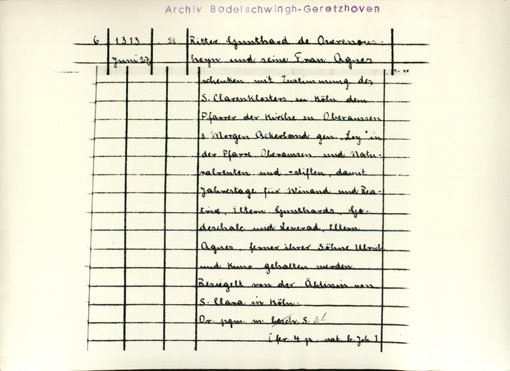 Archiv Bodelschwingh-Geretzhoven
6 1313 58 Ritter Gunthard de
Juni 27 heyn und seine Frau Agnes
schenken mit Zustimmung des
S. Clarenklosters zu Köln dem
Pfarrer der Kirche zu Oberaussen
Morgen Ackerland gen. "Loy" in
der Pfarre Oberaussen und Natu-
ralrenten und -stiften, damit
Jahrestage für Winand und Bea-
trix, Eltern Gunthards, Go-
deschalc und Eltern
Agnes, ferner ihrer Söhne Ulrich
und Kuno gehalten werden.
Besiegelt von der Äbtissin von
S. Clara in Köln.
Or. pgm. m. S.
(fer. 4 p. nat. b. Joh.)